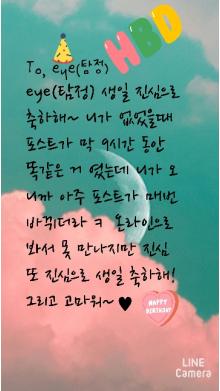 HBD
To, eye(탐정)
eye(탐정) 생일 진심으로
축하해~ 니가 없었을때
포스트가 막 9시간 동안
똑같은 거 였는데 니가 오
니까 아주 포스트가 매번
바뀌더라 ㅋ 온라인으로
봐서 못 만나지만 진심
또 진심으로 생일 축하해!
그리고 고마워~♥
HAPPY
BIRTHDAY
LINE
Camera